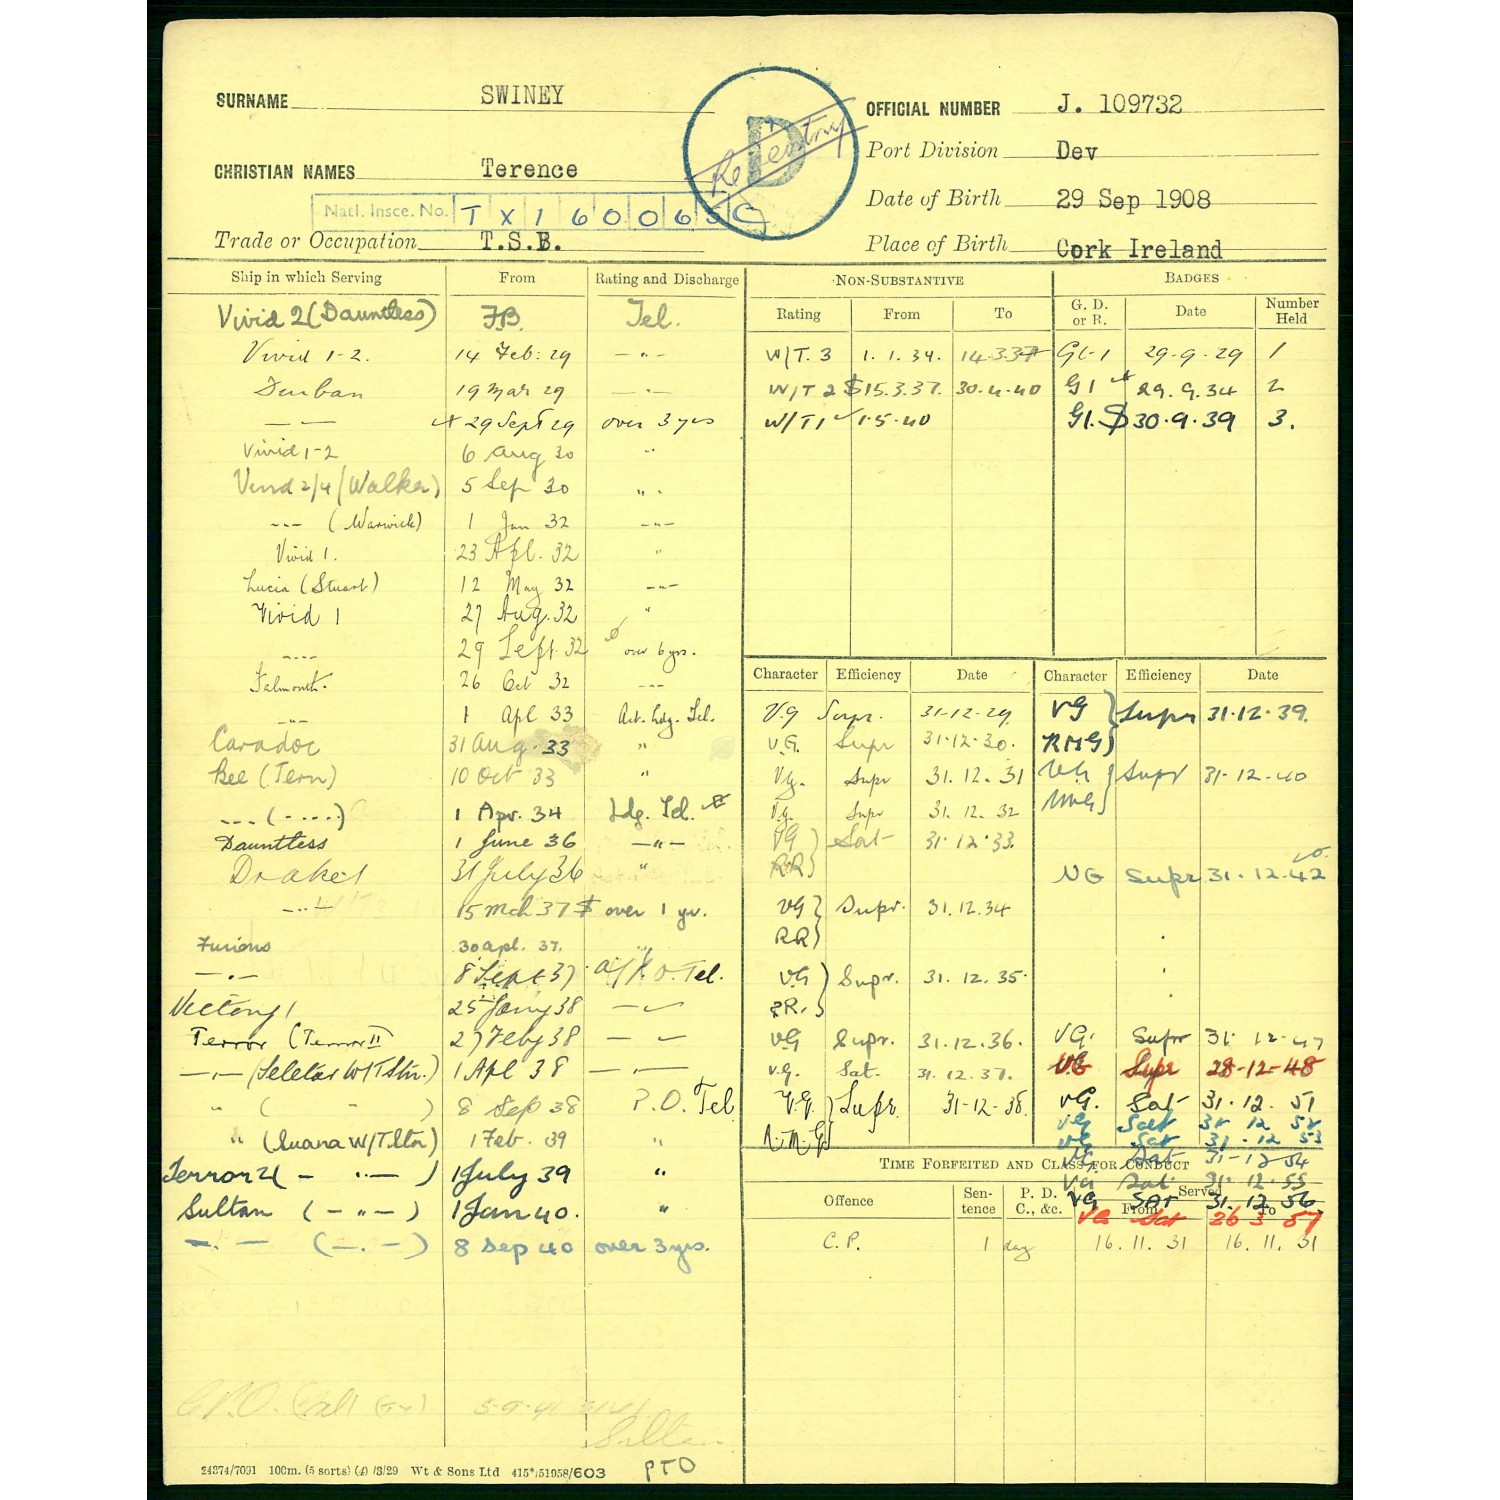 SURNAME SWINEY
OFFICIAL NUMBER J. 109732
D
Re entry
Port Division Dev
CHRISTIAN NAMES Terence
Date of Birth 29 Sep 1908
Natl. Insce. No. T X 1 6 0 0 6 5 C
Trade or Occupation T.S.B.
Place of Birth Cork Ireland
Ship in which Serving From Rating and Discharge
Vivid 2 (Dauntless) FB. Tel.
Vivid 1-2. 14 Feb: 29 — " —
Durban 19 Mar 29 — " —
— — 29 Sept 29 over 3 yrs
Vivid 1-2 6 Aug 30 "
Vivid 2/4 (Walker) 5 Sep 30 " .
--- (Warwick) 1 Jan 32 -"-
Vivid 1. 23 Apl. 32 "
Lucia (Stuart) 12 May 32 -"-
Vivid 1 27 Aug. 32 "
-.-- 29 Sept. 32 over 6 yrs.
Falmouth. 26 Oct 32 ---
-"- 1 Apl 33 Act. Ldg. Tel.
Caradoc 31 Aug. 33 "
Bee (Tern) 10 Oct 33 "
--- (- ---) 1 Apr. 34 Ldg. Tel.
Dauntless 1 June 36 —"—
Drake 1 31 July 36 "
-"- 15 Mch 37 $ over 1 yr.
Furious 30 Apl. 37. "
— . — 8 Sept 37 A/P.O. Tel.
Victory 1 25 Jany 38 — —
Terror (Terror II 27 Feby 38 — —
— . — (Seletar W/T Stn.) 1 Apl 38 — . —
" ( " ) 8 Sep 38 P.O. Tel
" (Suara W/T Stn) 1 Feb. 39 "
Terror 2 (- " -) 1 July 39 "
Sultan (- " -) 1 Jan 40. "
—. — (—. —) 8 Sep 40 over 3 yrs.
Sultan
24374/7091 100m. (5 sorts) (4) /3/29 Wt & Sons Ltd 415*/51958/603 PTO
NON-SUBSTANTIVE
Rating From To
W/T. 3 1. 1. 34. 14.3.37
W/T 2 $ 15.3.37. 30.4.40
W/T 1 1.5.40
BADGES
G. D. or R. Date Number Held
G 1 29-9-29 1
G 1 29. 9. 34 2
G1. $ 30.9.39 3.
Character Efficiency Date
V.G Supr. 31-12-29
V.G. Supr 31-12-30.
V.g. Supr 31. 12. 31
V.g. Supr 31. 12. 32
VG } Sat 31.12.33.
RR }
VG } Supr. 31.12.34
RR }
VG } Supr. 31. 12. 35.
RR. }
VG Supr. 31.12.36.
V.g. Sat. 31.12.37.
V.G. } Supr. 31-12-38.
R.M.G }
Character Efficiency Date
VG } Supr 31.12.39.
RMG }
V.G } Supr 31-12-40
RMG }
VG Supr 31.12.42
VG. Supr 31. 12-47
VG Supr 28-12-48
VG. Sat 31. 12. 51
VG Sat 31 12 52
VG Sat 31.12 53
VG. Sat 31-12 54
VG Sat 31.12.55
VG Sat 31.12 56
VG Sat 26 3 57
TIME FORFEITED AND CLASS FOR CONDUCT
Offence Sentence P. D. C., &c. Served From To
C.P. 1 day 16. 11. 31 16. 11. 31